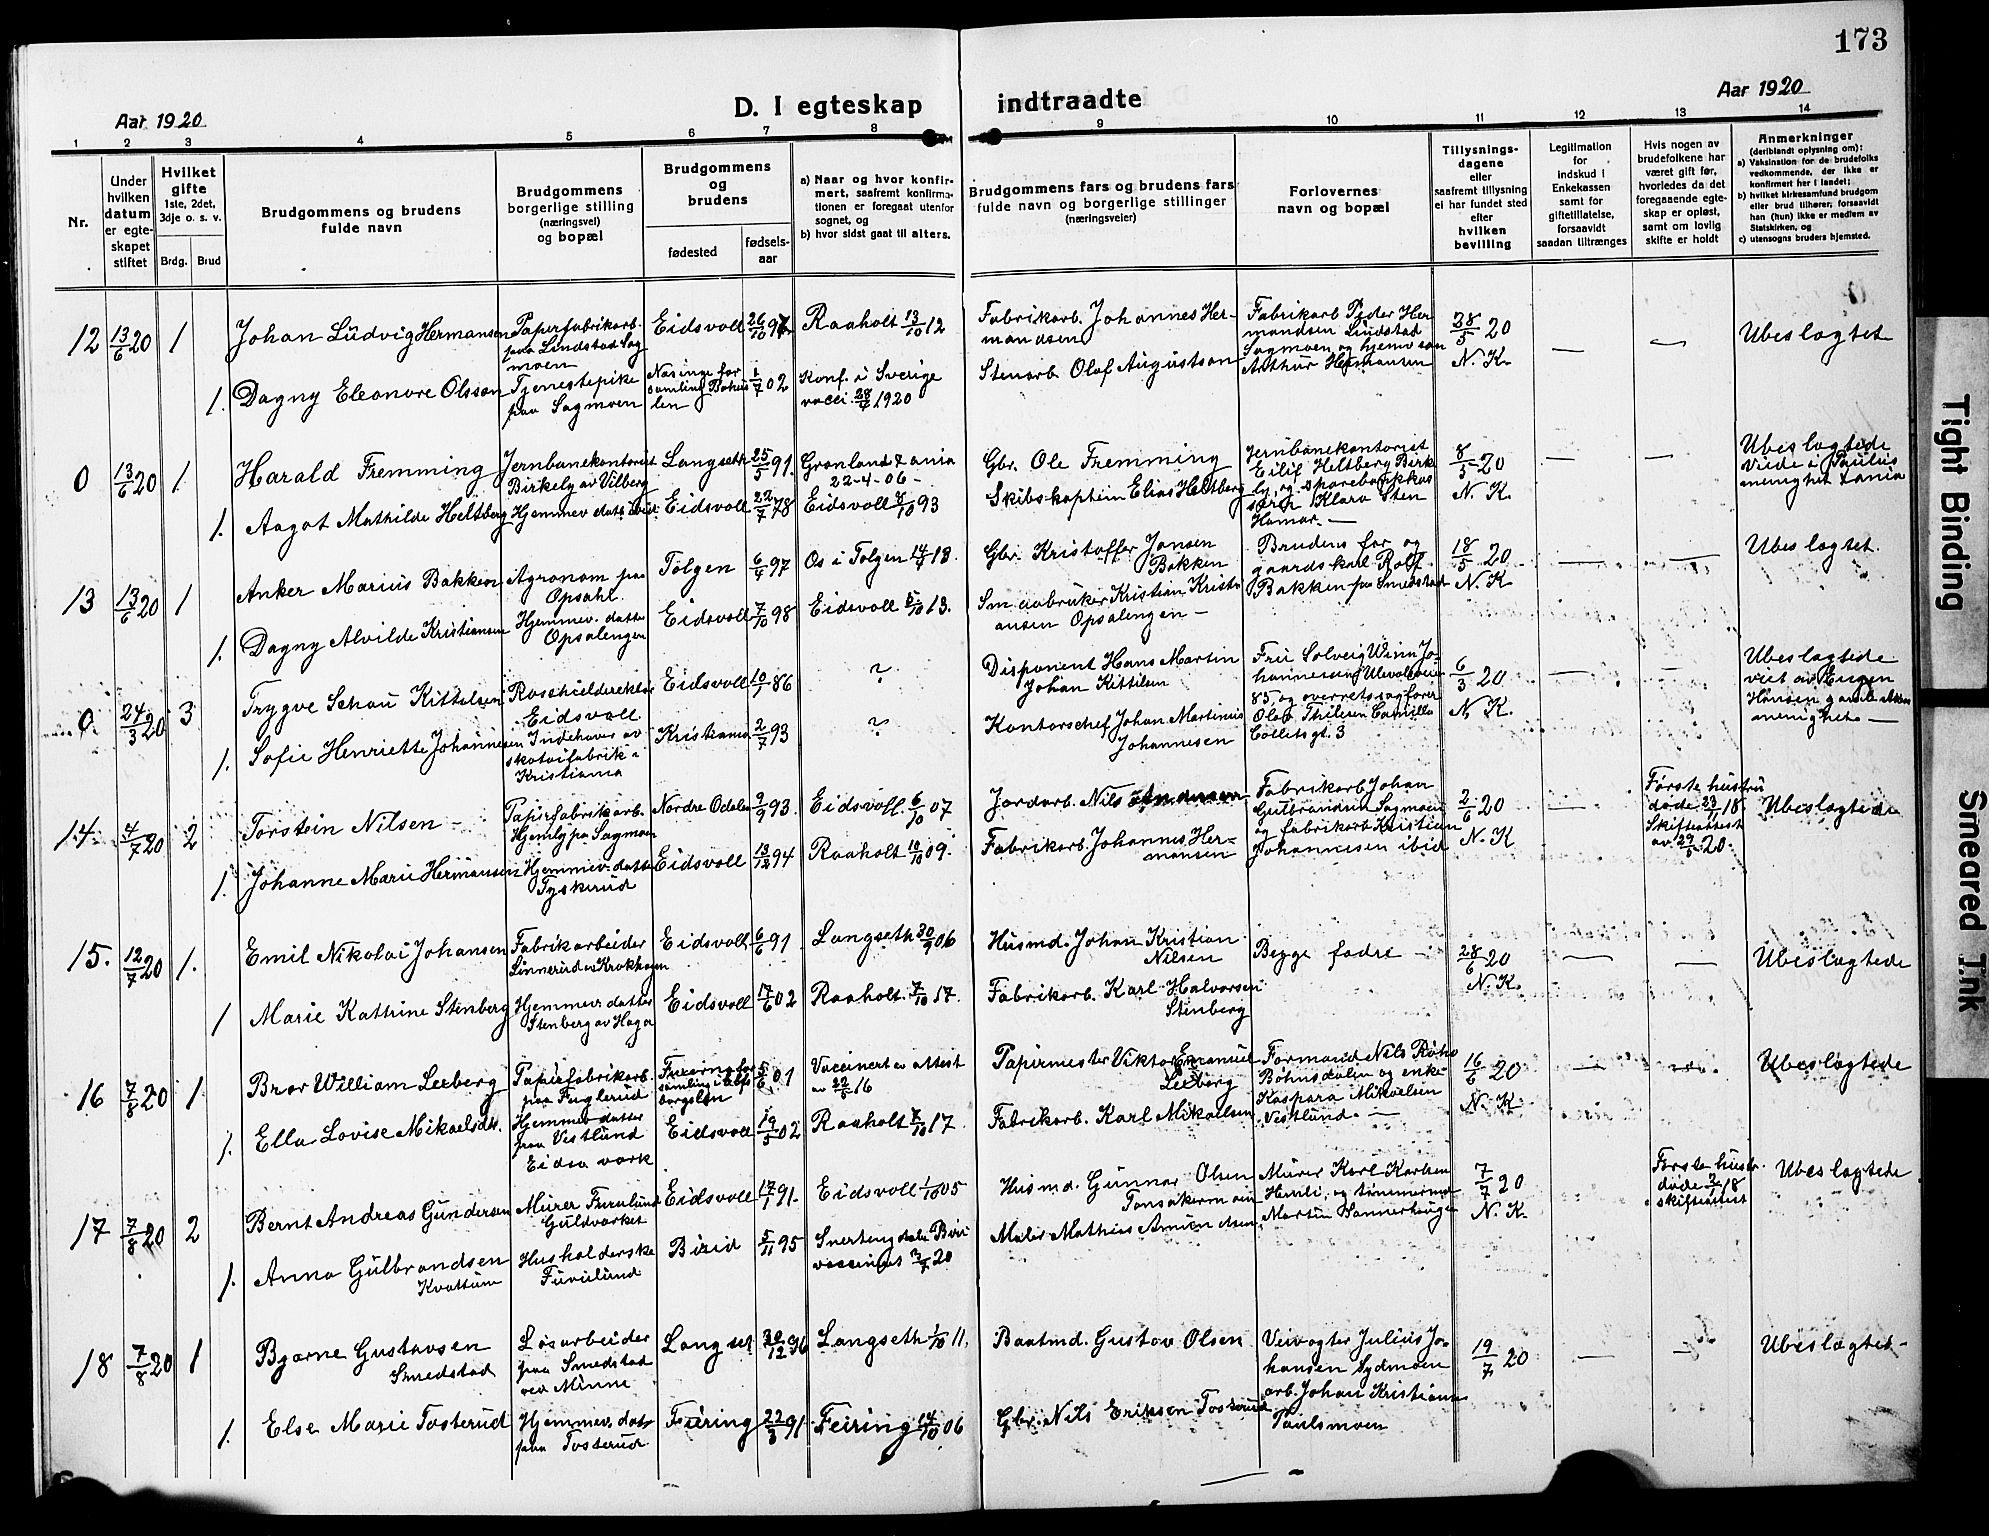 173
Aar 1920
D. I egteskap indtraadte
Aar 1920
1 2 3 4 5 6 7 8 9 10 11 12 13 14
Nr.
Under hvilken datum er egteskapet stiftet
Hvilket gifte 1ste, 2det, 3dje o. s. v.
Brdg. Brud
Brudgommens og brudens fulde navn
Brudgommens borgerlige stilling (næringsvei) og bopæl
Brudgommens og brudens
fødested
fødselsaar
a) Naar og hvor konfirmert, saafremt konfirmationen er foregaat utenfor sognet, og
b) hvor sidst gaat til alters.
Brudgommens fars og brudens fars fulde navn og borgerlige stillinger (næringsveier)
Forlovernes navn og bopæl
Tillysningsdagene eller saafremt tillysning ei har fundet sted efter hvilken bevilling
Legitimation for indskud i Enkekassen samt for giftetillatelse, forsaavidt saadan tiltrænges
Hvis nogen av brudefolkene har været gift før, hvorledes da det foregaaende egteskap er opløst, samt om lovlig skifte er holdt
Anmerkninger (deriblandt oplysning om):
a) Vaksination for de brudefolks vedkommende, der ikke er konfirmert her i landet;
b) hvilket kirkesamfund brudgom eller brud tilhører, forsaavidt han (hun) ikke er medlem av Statskirken, og
c) utensogns bruders hjemsted.
12 13/6 20 1 Johan Ludvig Hermansen Papirfabrikarb. paa Lindstad Sagmoen Eidsvoll 26/10 97 Raaholt 13/10 12 Fabrikarb. Johannes Hermandsen Fabrikarb Peder Hermandsen Lindstad Sagmoen og hjemv søn Arthur Hermansen 28/5 20 N. K. — — Ubeslægtet
1. Dagny Eleonore Olsson Tjenestepike paa Sagmoen Næsinge forsamling Bohuslen 1/7 02 Konf. i Sverige vacci. 28/4 1920 Stenarb. Olof Augustson
0 13/6 20 1 Harald Fremming Jernbanekontorist Birkely av Vilberg Langseth 25/5 91. Grønland Kania 22-4-06- Gbr. Ole Fremming Jernbanekontorist Eilif Heltberg Birkely, og sparebankkas Klara Sten Hamar. — 8/5 20 N. K. — — Ubeslægtede Viede i Paulus menighet Kania
1. Aagot Mathilde Heltberg Hjemmev datt ibid. Eidsvoll 22/7 78 Eidsvoll 8/10 93 Skibskaptein Elias Heltberg
13 13/6 20 1 Anker Marius Bakken Agronom paa Opsahl. Tolgen 6/4 97 Os i Tolgen 14/7 13. Gbr. Kristoffer Jonsen Bakken Brudens far og gaardskarl Rolf Bakken paa Smedstad 18/5 20 N. K — — Ubeslægtet.
1. Dagny Alvilde Kristiansen Hjemmev. datter Opsalengen Eidsvoll 7/10 98 Eidsvoll 5/10 13. Smaabruker Kristian Kristiansen Opsalengen —
0. 24/3 20 3 Trygve Schou Kittelsen Eidsvoll Indehaver av skotøifabrik i Kristiania Eidsvoll 10/1 86 ? Disponent Hans Martin Johan Kittilsen Fru Solveig Winn Johannesen Ulevolsveien 85 og overretssagfører Olaf Thilesen Camilla Colletsgt. 3 6/3 20 N. K. — — Ubeslægtede viet av Eugen Hansen menighet —
1. Sofie Henriette Johannesen Kristiania 2/7 93 ? Kontorschef Johan Martinius Johannesen
14. 4/7 20 2 Torstein Nilsen — Papirfabrikarb. Hjemly pa Sagmoen Nordre Odalen 9/9 93. Eidsvoll. 6/10 07 Jordarb. Nils Fabrikarb Johan Gulbrandsen Sagmoen og fabrikarb Kristian Johannesen ibid 2/6 20 N. K — Første hustru døde 23/1 18. Skifteattest av 29/5 20. Ubeslægtede
1. Johanne Marie Hermansen Hjemmev. datter Tyskerud Eidsvoll 13/12 94 Raaholt 10/10 09. Fabrikarb. Johannes Hermansen
15. 12/7 20 1. Emil Nikolai Johansen Fabrikarbeider Linnerud av Krokhagen Eidsvoll 6/6 91 Langseth 30/9 06 Husmd. Johan Kristian Nilsen Begge fædre — 28/6 20 N. K. — — Ubeslægtede
1 Marie Kathrine Stenberg Hjemmev. datter Stenberg av Haga Eidsvoll 17/6 02 Raaholt. 7/10 17. Fabrikarb. Karl Halvorsen Stenberg
16 7/8 20 1 Bror William Leeberg Papirfabrikarb. paa Fuglerud forsamling i Elfsborgslen 5/6 01 Vaccinert ev attest av 22/5 16 Papirmester Viktor Emanuel Leeberg Formand Nils Bøhnsdalen og enke Kaspara Mikaelsen Vestlund. — 16/6 20 N. K. — — Ubeslægtede
1. Ella Lovise Mikaelsdtr. Hjemmev datter paa Vestlund Eidsa værk Eidsvoll 19/5 02 Raaholt 7/10 17. Fabrikarb. Karl Mikaelsen
17 7/8 20 2 Bernt Andreas Gundersen Murer Furulund Guldværket Eidsvoll 17/1 91. Eidsvoll 1/10 05 Husmd. Gunnar Olsen Murer Karl Karlsen Henli, og tømmermd Martin Sannerhaugen 7/7 20 N. K. Første hustr. døde 2/1 18 skifteattest Ubeslægtede
1. Anna Gulbrandsen Kvattum Husholderske Furulund Birid 5/11 95 Snertingdalen Biri vaccinert 3/7 20 Maler Mathias Amundsen
18 7/8 20 1 Bjarne Gustavsen Smedstad Løsarbeider paa Smedstad ved Minne Langset 30/12 96 Langseth 1/10 11. Baatmd. Gustav Olsen Veivogter Julius Johansen Sydmoen arb. Johan Kristians Paulsmoen 19/7 20 — — Ubeslægtet-
1. Else Marie Tosterud Hjemmev. datt paa Tosterud Feiring 22/3 91 Feiring 14/10 06 Gbr. Nils Eriksen Tosterud
Tight Binding
Smeared Ink